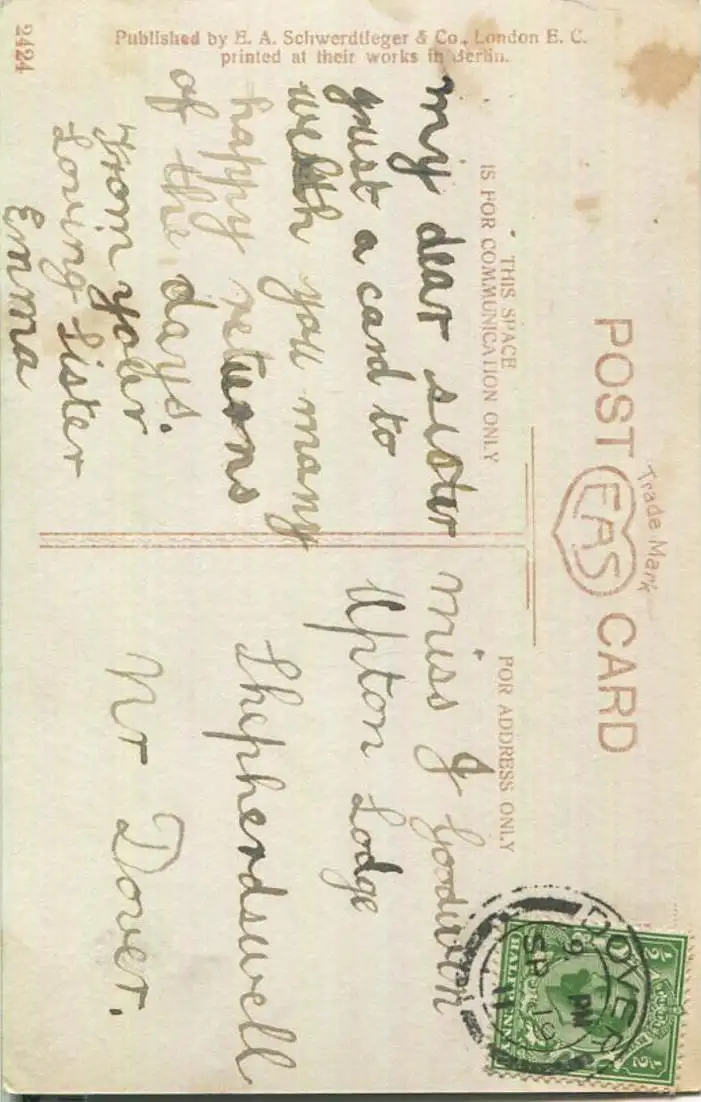 Published by E. A. Schwerdtfeger & Co., London E. C.
printed at their works in Berlin.
2424
POST CARD
Trade Mark
EAS
THIS SPACE
IS FOR COMMUNICATION ONLY
FOR ADDRESS ONLY
my dear sister
just a card to
wish you many
happy returns
of the days.
From your
Loving Sister
Emma
Miss J Goodwin
Upton Lodge
Shepherdswell
Nr Dover.
DOVER
6 PM
SP 19
11
HALFPENNY
1/2
1/2